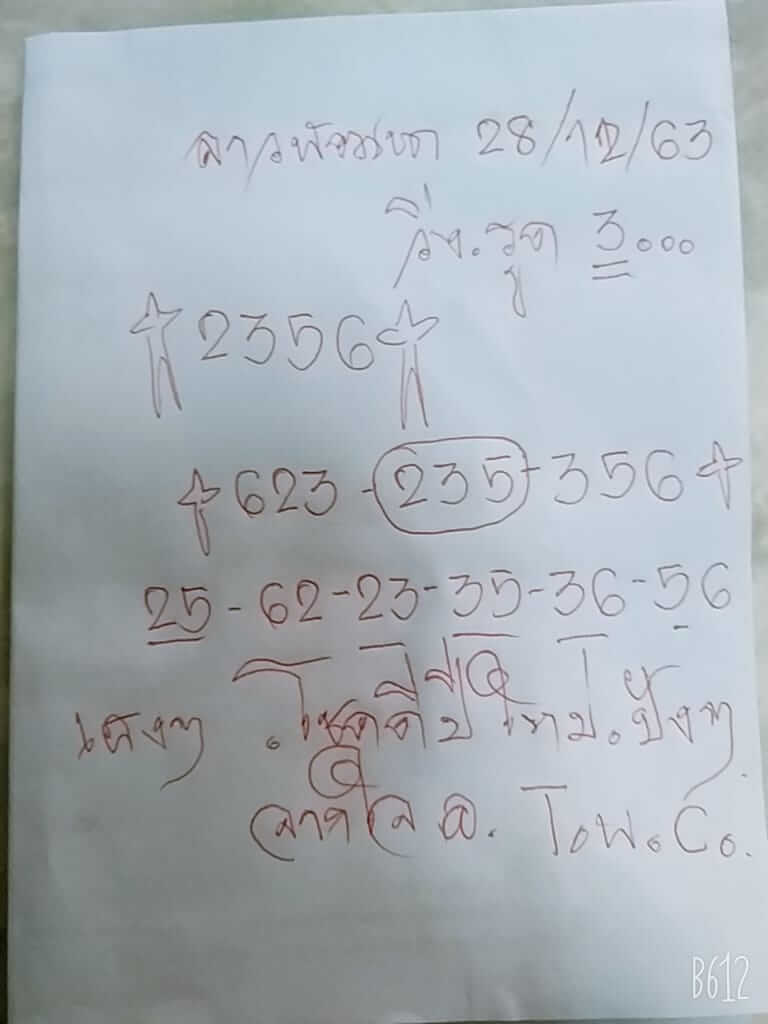 ลาวพัฒนา 28/12/63
วิ่ง.รูด 3...
2356
623 - 235 - 356
25 - 62 - 23 - 35 - 36 - 56
เฮงๆ .โชคดีปีใหม่.ปังๆ
จากใจ อ. Tow.Co.
B612